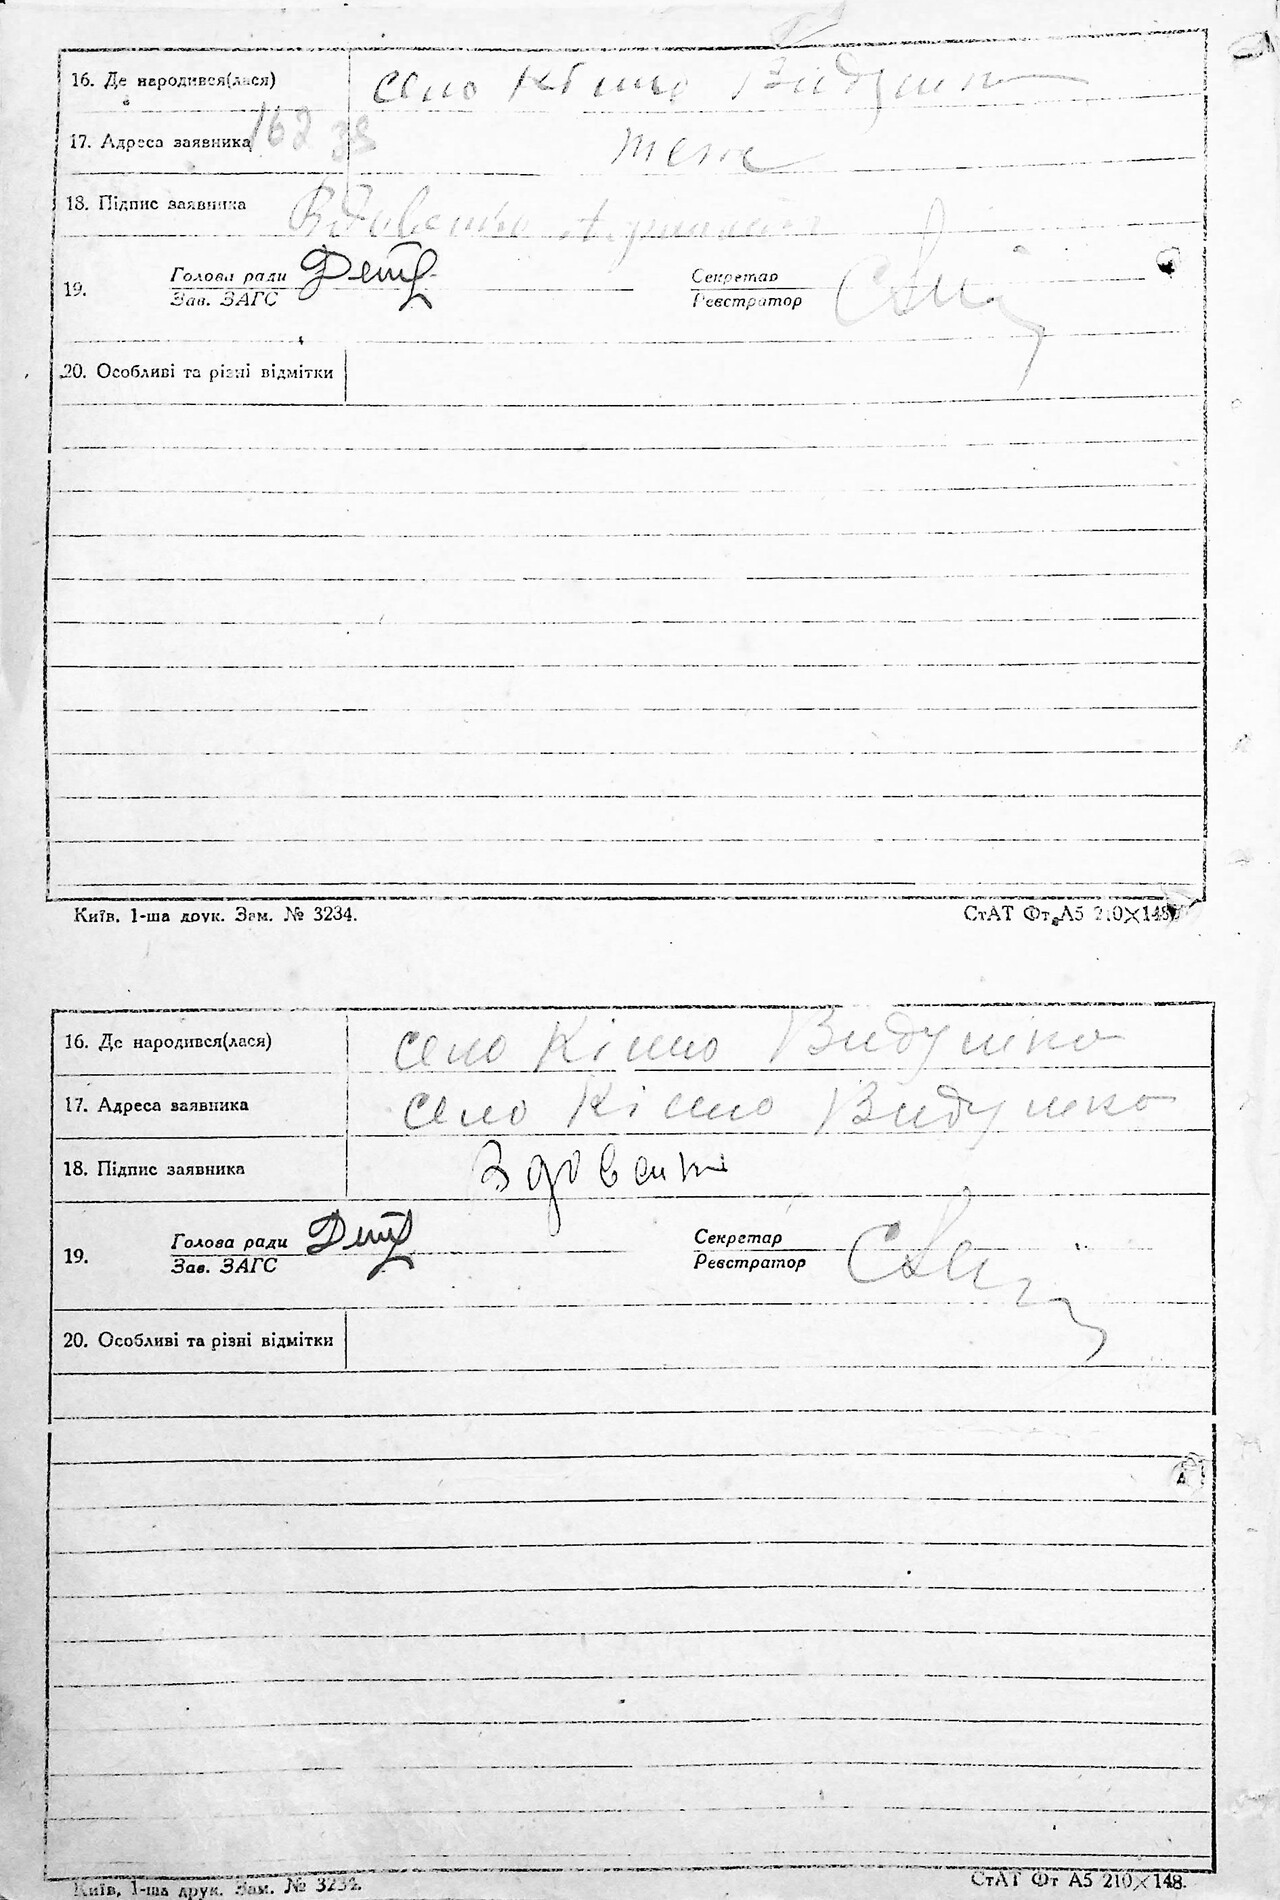 16. Де народився(лася) село Кішо Видумка
17. Адреса заявника 162 39 теж
18. Підпис заявника
19. Голова ради Секретар
Зав. ЗАГС Реєстратор
20. Особливі та різні відмітки
Київ, 1-ша друк. Зам. № 3234. СтАТ Фт. А5 210×148.
16. Де народився(лася) село Кішо Видумка
17. Адреса заявника село Кішо Видумка
18. Підпис заявника Здовенкі
19. Голова ради Секретар
Зав. ЗАГС Реєстратор
20. Особливі та різні відмітки
Київ, 1-ша друк. Зам. № 3234. СтАТ Фт А5 210×148.